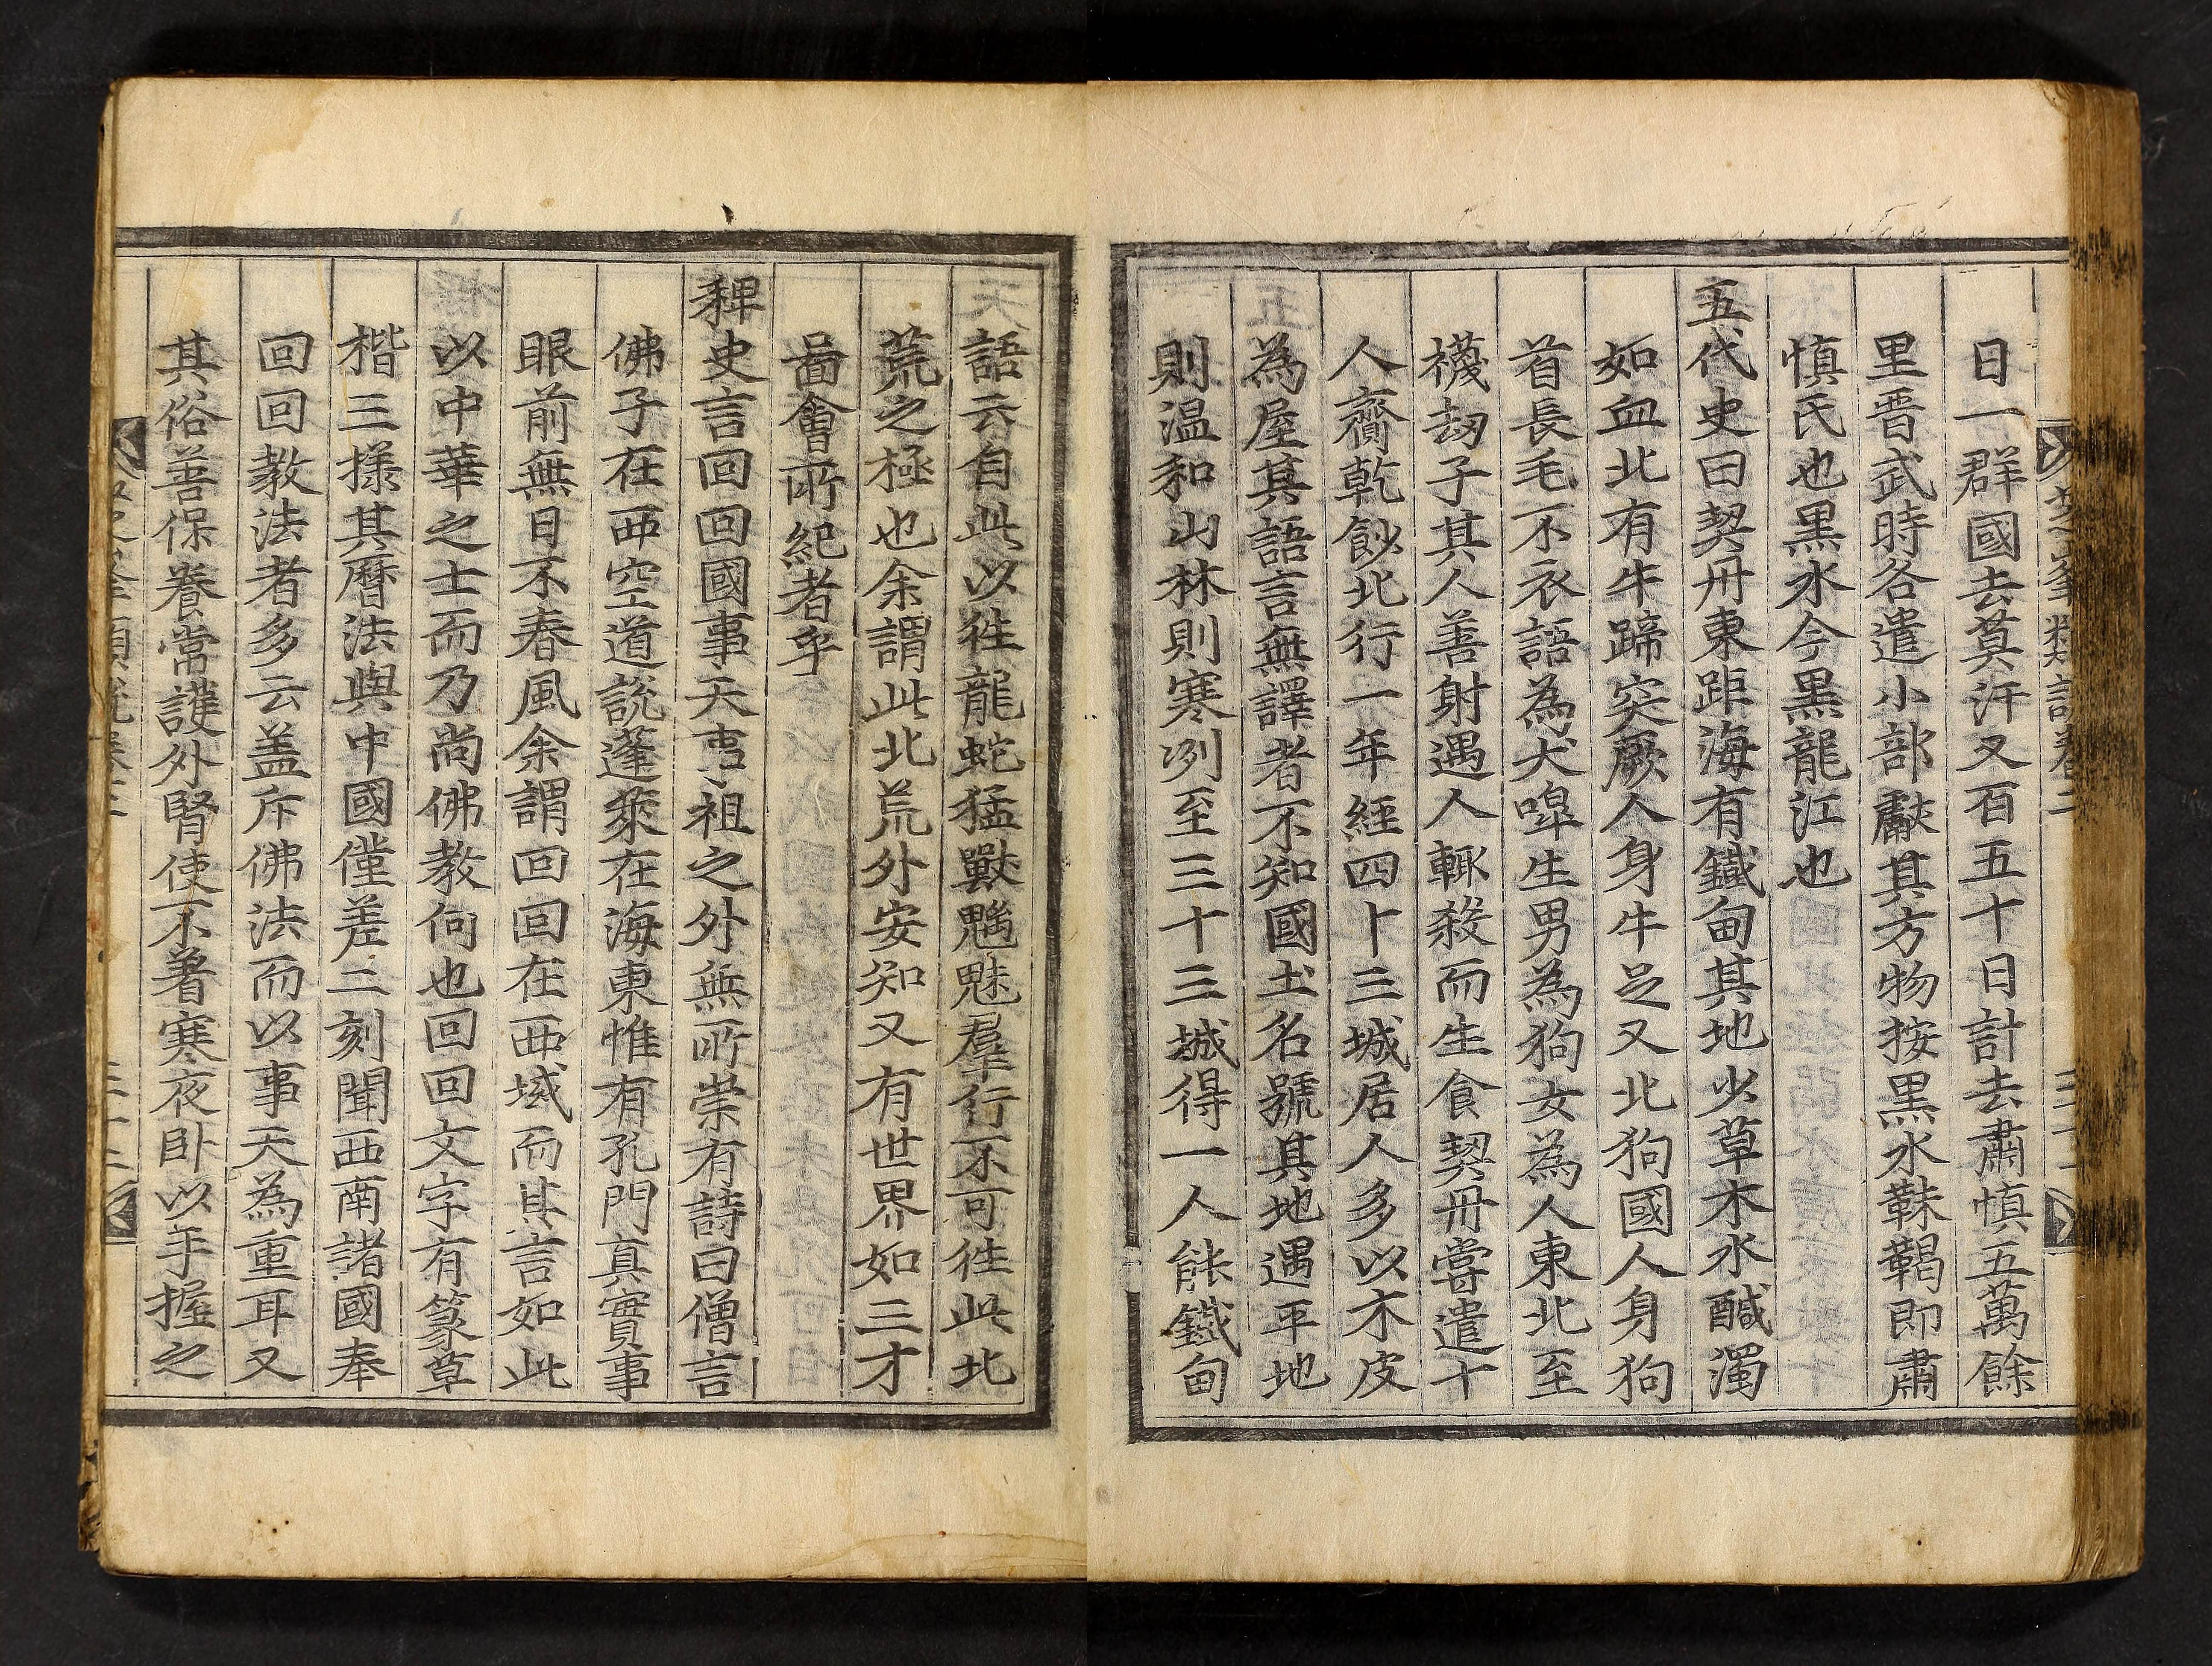 日一群國去莫汗又百五十日計去肅慎五萬餘
里晋武時各遣小部獻其方物按黑水靺鞨即肅
慎氏也黑水今黑龍江也
五代史曰契丹東距海有鐵甸其地少草木水醎濁
如血北有牛蹄突厥人身牛足又北狗國人身狗
首長毛不衣語為犬嘷生男為狗女為人東北至
襪劫子其人善射遇人輒殺而生食契丹嘗遣十
人齎乾飱北行一年經四十三城居人多以木皮
為屋其語言無譯者不知國土名號其地遇平地
則温和山林則寒冽至三十三城得一人能鐵甸
語云自此以徃龍蛇猛獸魑魅羣行不可徃此北
荒之極也余謂此北荒外安知又有世界如三才
啚會所紀者乎
稗史言回回國事天事祖之外無所崇有詩曰僧言
佛子在西空道說蓬萊在海東惟有孔門真實事
眼前無日不春風余謂回回在西域而其言如此
以中華之士而乃尚佛教何也回回文字有篆草
楷三㨾其曆法與中國僅差二刻聞西南諸國奉
回回教法者多云盖斥佛法而以事天為重耳又
其俗善保養常護外腎使不著寒夜卧以手握之
芝峯類說卷二
芝峯類說卷二